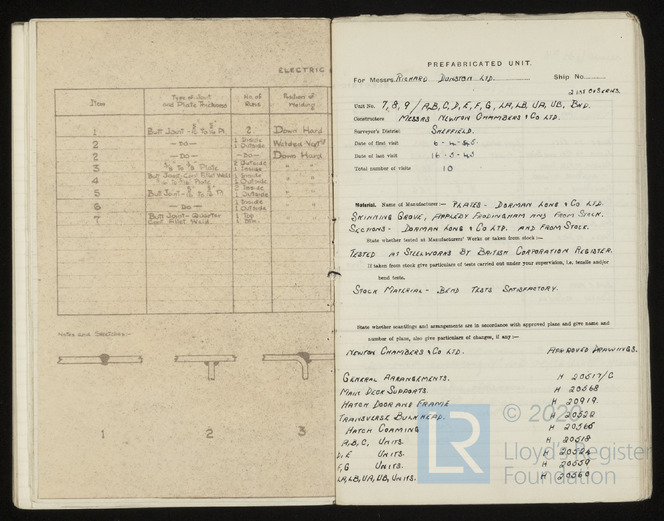 ELECTRIC
Item
Type of Joint and Plate Thickness
No. of Runs
Position of Welding
1 Butt Joint 2 Down Hand
2 -do- 1 Inside 1 Outside Welded Vert
2 -do- Down Hand
3 Plate 2 Outside 1 Inside " "
4 Plate 1 Inside 1 Outside " "
5 Butt Joint 1 Inside Outside " "
6 -do- 1 Inside 1 Outside "
7 Butt Joint - Quarter Weld. 1 Top 1 "
Notes and Sketches:-
1 2 3
PREFABRICATED UNIT.
For Messrs. RICHARD DUNSTON LTD. Ship No.
Unit No. 7, 8, 9 / A,B,C,D,E,F,G, LA,LB, UA, UB, BKD.
Constructors MESSRS NEWTON CHAMBERS & CO LTD.
Surveyor's District SHEFFIELD.
Date of first visit
Date of last visit 16-5-45
Total number of visits 10
Material. Name of Manufacturer:— PLATES - DORMAN LONG & CO LTD.
SKINNING GROVE, APPLEBY FRODINGHAM AND FROM STOCK.
SECTIONS - DORMAN LONG & CO LTD. AND FROM STOCK.
State whether tested at Manufacturers' Works or taken from stock:—
TESTED AT STEELWORKS BY BRITISH CORPORATION REGISTER.
If taken from stock give particulars of tests carried out under your supervision, i.e. tensile and/or
bend tests.
STOCK MATERIAL - BEND TESTS SATISFACTORY.
State whether scantlings and arrangements are in accordance with approved plans and give name and
number of plans, also give particulars of changes, if any:—
NEWTON CHAMBERS & CO LTD. APPROVED DRAWINGS.
GENERAL ARRANGEMENTS. H 20517/C
MAIN DECK SUPPORTS. H 20568
HATCH DOOR AND FRAME H 20919.
TRANSVERSE BULKHEAD. H 20522
HATCH COAMING H 20565
A,B,C, UNITS. H 20518
D,E UNITS. H 20524
F,G UNITS. H 20559
LA,LB,UA,UB, UNITS. H 20560
LR
© 2020
Lloyd's Register
Foundation